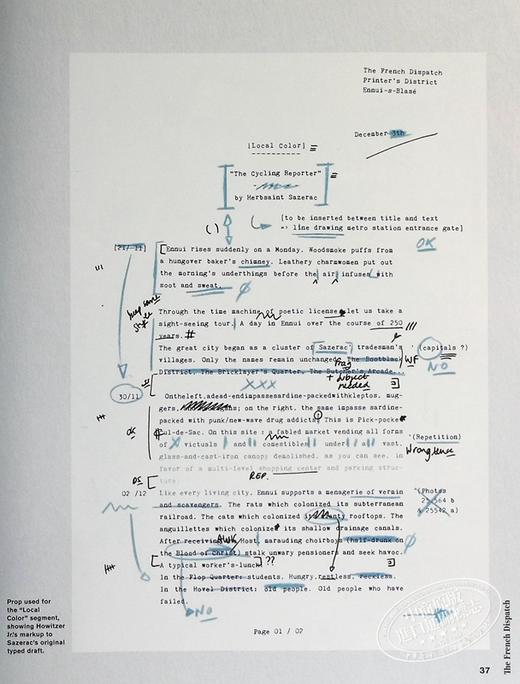 The French Dispatch
Printer's District
Ennui-s-Blasé
December 3th
[Local Color]
"The Cycling Reporter"
by Herbsaint Sazerac
[to be inserted between title and text
=> line drawing metro station entrance gate]
OK
()
Ennui rises suddenly on a Monday. Woodsmoke puffs from
a hungover baker's chimney. Leathery charwomen put out
the morning's underthings before the air infuses with
soot and sweat.
Through the time machine of poetic license let us take a
sight-seeing tour. A day in Ennui over the course of 250
years. #
The great city began as a cluster of Sazerac tradesman's
(capitals ?)
villages. Only the names remain unchanged. The Bootblack
WF
NO
District. The Bricklayer's Quarter. The Butcher's Arcade.
Frag
+ subject
needed
XXX
30/11
Ontheleft,adead-endimpassesardine-packedwithkleptos, mug-
gers, on the right, the same impasse sardine-
packed with punk/new-wave drug addicts This is Pick-pocket
Cul-de-Sac. On this site : a fabled market vending all forms
OK
(Repetition)
of victuals and comestibles under all vast,
Wrong tense
glass-and-cast-iron canopy demolished, as you can see, in
favor of a multi-level shopping center and parking struc-
ture.
REP.
02 /12
Like every living city, Ennui supports a menagerie of vermin
(Photos
and scavengers. The rats which colonized its subterranean
railroad. The cats which colonized rooftops. The
& 25542 a)
anguillettes which colonized its shallow drainage canals.
After receiving Host, marauding choirboys (half-drunk on
AWK
the Blood of Christ) stalk unwary pensioners and seek havoc.
A typical worker's-lunch ??
In the Flop Quarter: students. Hungry, restless, reckless.
In the Hovel District: old people. Old people who have
failed.
NO
Page 01 / 02
Prop used for
the "Local
Color" segment,
showing Howitzer
Jr.'s markup to
Sazerac's original
typed draft.
37
The French Dispatch